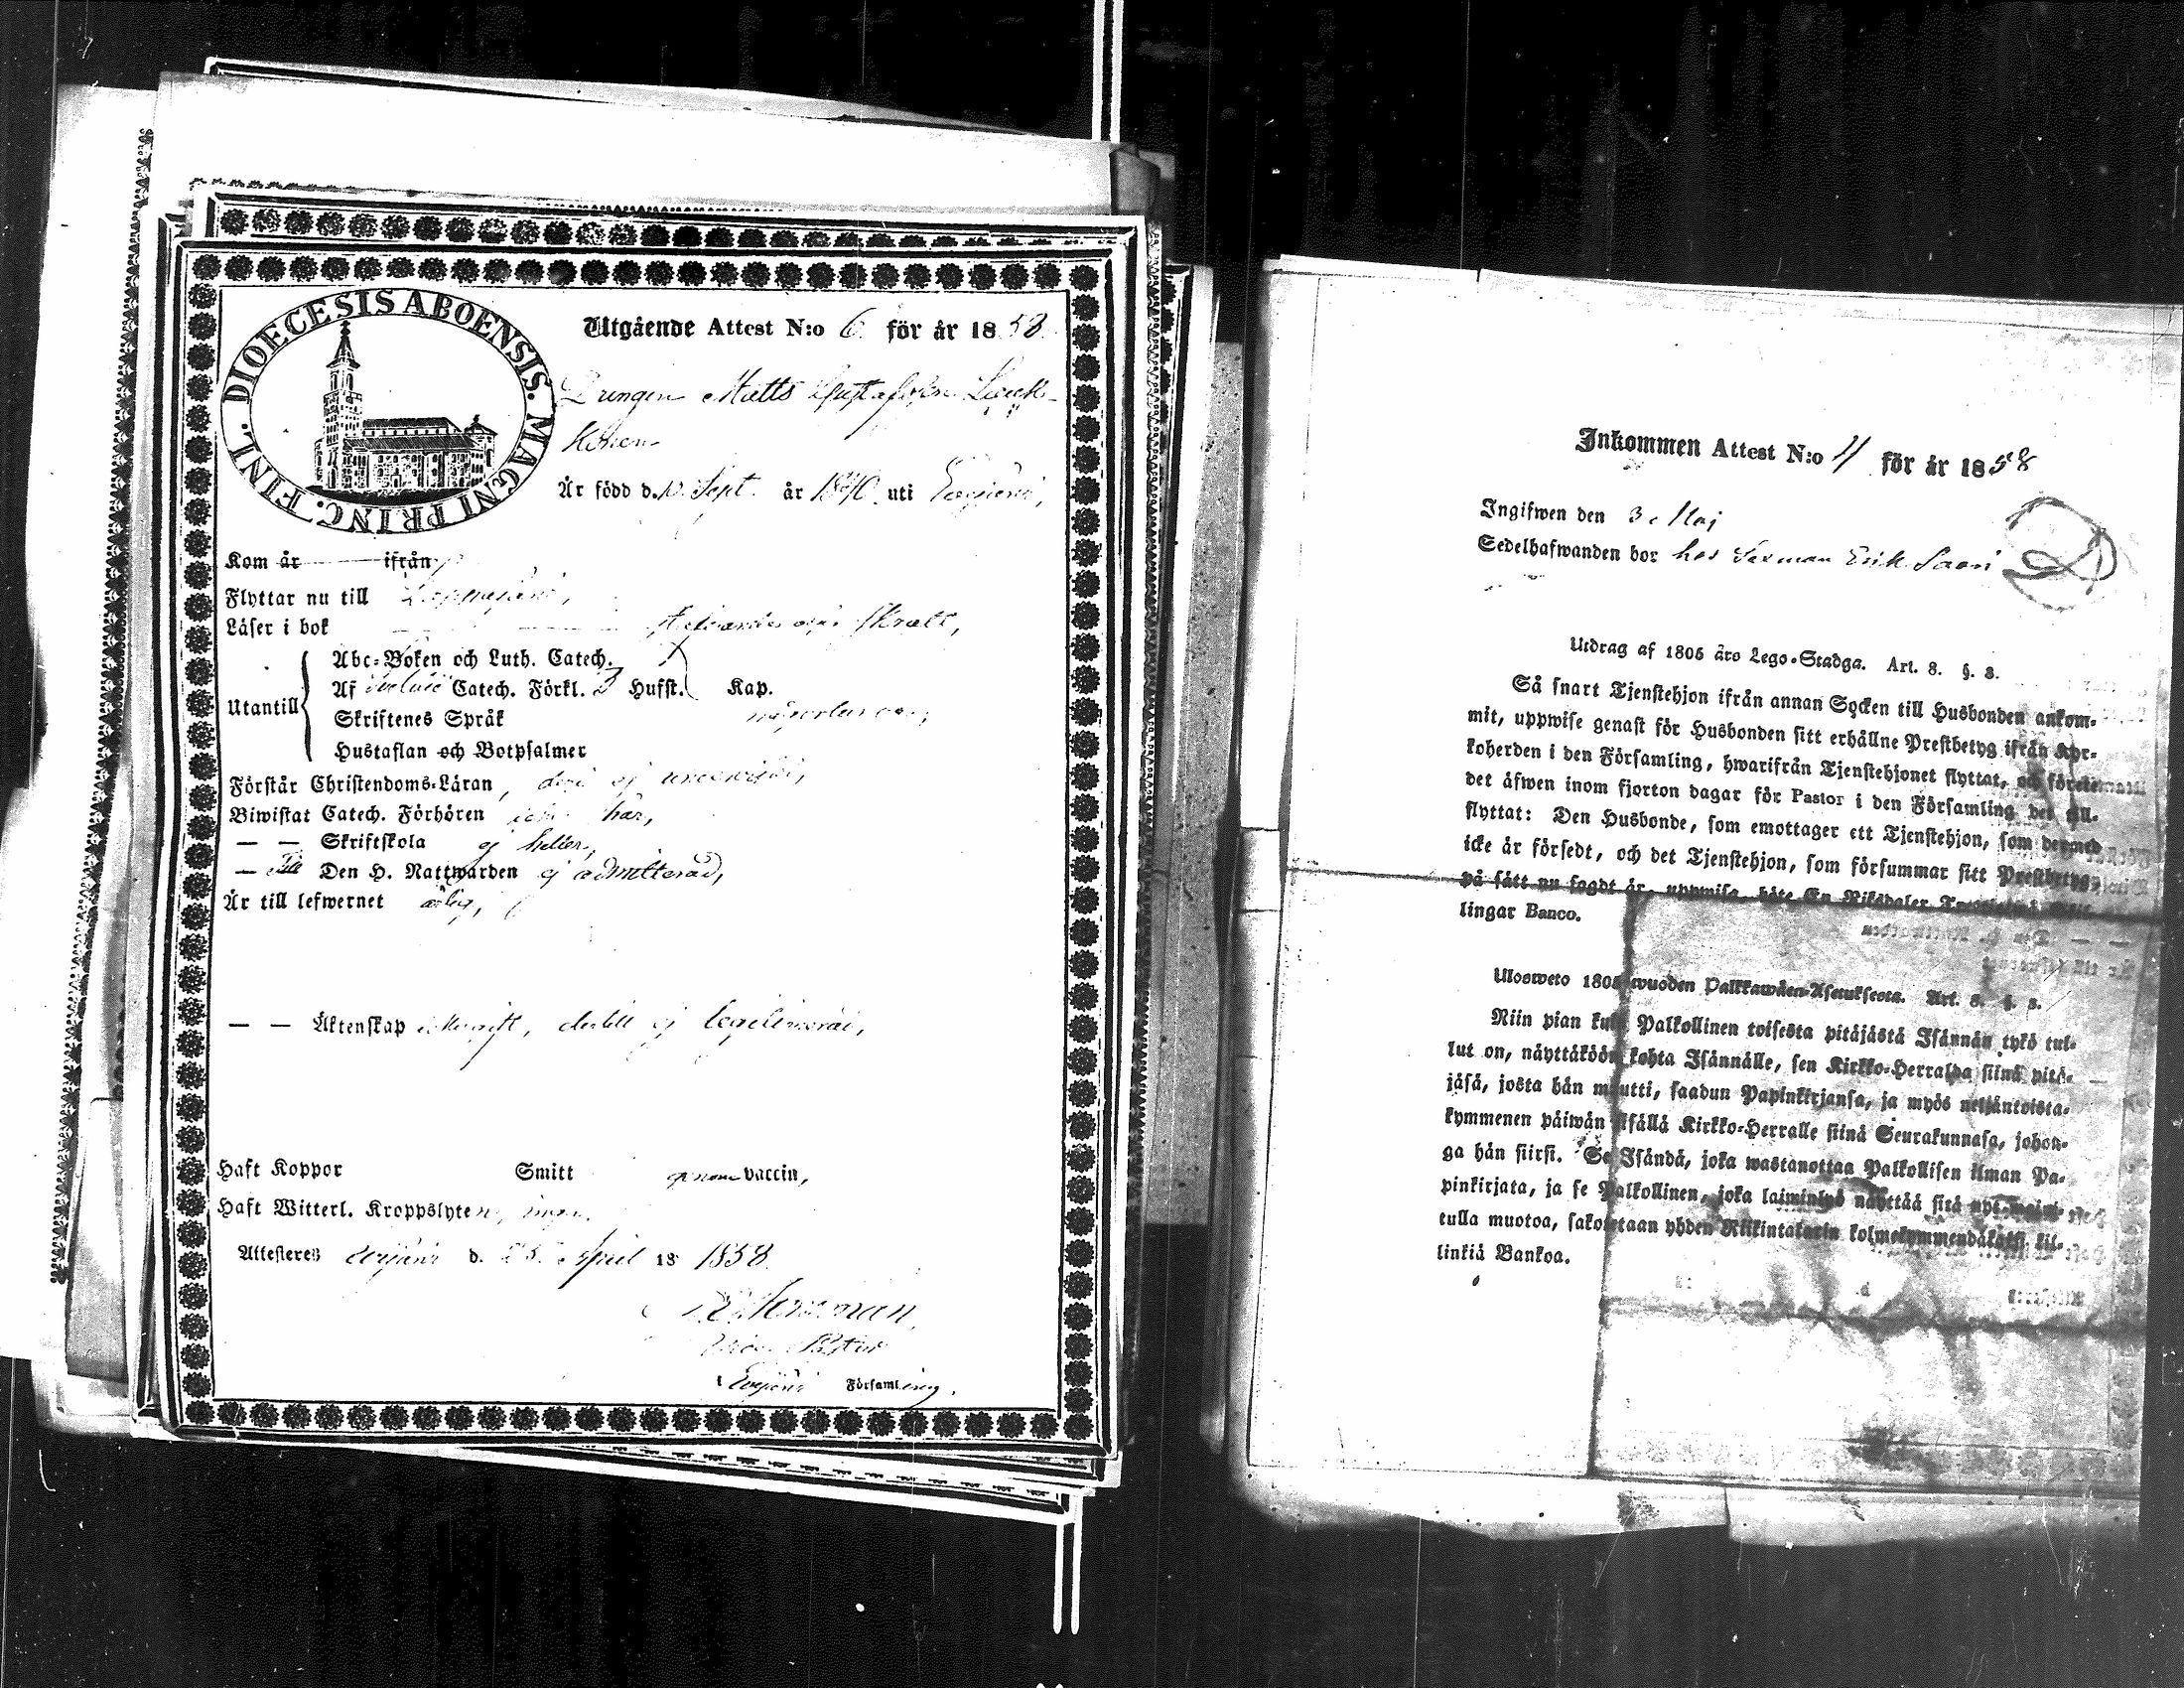 DIOECESIS ABOENSIS. MAGNI PRINC. FINL.
Utgående Attest N:o 6 för år 1858.
Drengen Matts Gustafsson Lack-
konen
Är född d. 10 Sept. år 1840 uti Evijärvi,
Kom år ifrån
Flyttar nu till Lappajärvi,
Läser i bok försvarligt, svagt
Abc-Boken och Luth. Catech.
Utantill Af Catech. Förkl. 3 Husst. Kap.
Skriftenes Språk
Hustaflan och Botpsalmer
Förstår Christendoms-Läran, ej
Biwistat Catech. Förhören här,
— — Skriftskola ej heller,
— Till Den H. Nattwarden ej admitterad,
Är till lefwernet ärlig,
— — Äktenskap ej
Haft Koppor Smitt genom vaccin,
Haft Witterl. Kroppslyten, inga.
Attesteres Evijärvi d. 25 April 18 1858.
Vice Pastor
Evijärvi Församling.
Inkommen Attest N:o 4 för år 1858
Ingifwen den 3 Maj
Sedelhafwanden bor hos Sexman Erik Saari
Utdrag af 1805 års Lego-Stadga. Art. 8. §. 8.
Så snart Tjenstehjon ifrån annan Socken till Husbonden ankom-
mit, uppwise genast för Husbonden sitt erhållne Prestbetyg ifrån Kyr-
koherden i den Församling, hwarifrån Tjenstehjonet flyttat, och förete
det äfwen inom fjorton dagar för Pastor i den Församling det till-
flyttat: Den Husbonde, som emottager ett Tjenstehjon, som dermed
icke är försedt, och det Tjenstehjon, som försummar sitt Prestbetyg,
på sätt nu sagdt är, uppwisa, böte En Riksdaler
lingar Banco.
Ulosweto 1805 wuoden Palkkawäen-Asetuksesta. Art. 8. §. 8.
Niin pian kuin Palkollinen toisesta pitäjästä Isännän tykö tul-
lut on, näyttäköön kohta Isännälle, sen Kirkko-Herralda siinä pitä-
jäsä, josta hän muutti, saadun Papinkirjansa, ja myös neljäntoista-
kymmenen päiwän sisällä Kirkko-Herralle siinä Seurakunnasa, johon-
ga hän siirsi. Se Isändä, joka wastanottaa Palkollisen ilman Pa-
pinkirjata, ja se Palkollinen, joka laiminlyö näyttää sitä nyt mainit-
tulla muotoa, sakotetaan yhden Riikintalarin kolmekymmendäkaksi kil-
linkiä Bankoa.